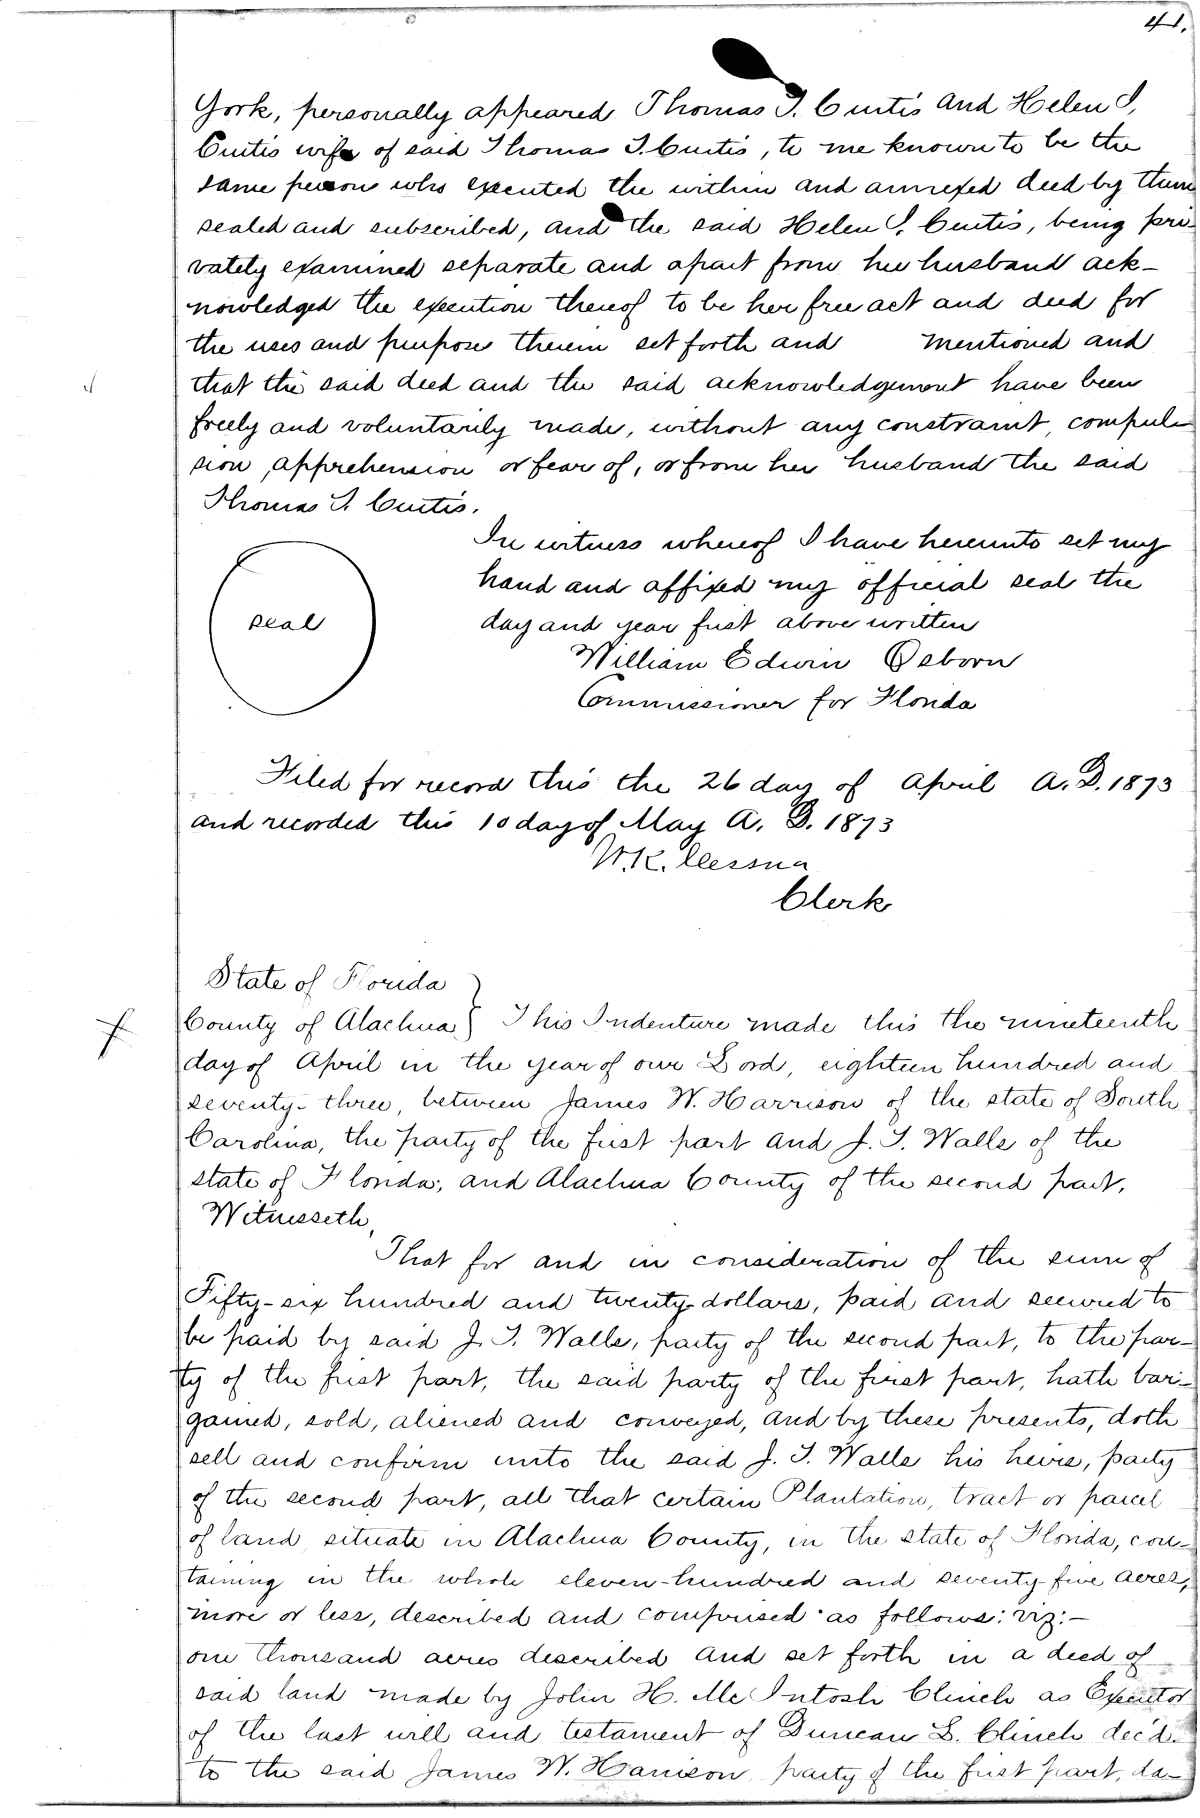 41.
York, personally appeared Thomas T. Curtis and Helen I.
Curtis wife of said Thomas T. Curtis, to me known to be the
same person who executed the within and annexed deed by them
sealed and subscribed, and the said Helen I. Curtis, being pri-
vately examined separate and apart from her husband ack-
nowledged the execution thereof to be her free act and deed for
the uses and purposes therein set forth and mentioned and
that the said deed and the said acknowledgement have been
freely and voluntarily made, without any constraint, compul-
sion, apprehension or fear of, or from her husband the said
Thomas T. Curtis.
In witness whereof I have hereunto set my
hand and affixed my official seal the
seal
day and year first above written
William Edwin Osborn
Commissioner for Florida
Filed for record this the 26 day of April A.D. 1873
and recorded this 10 day of May A. D. 1873
W.K. Cessna
Clerk
State of Florida }
County of Alachua } This Indenture made this the nineteenth
day of April in the year of our Lord, eighteen hundred and
seventy-three, between James W. Harrison of the state of South
Carolina, the party of the first part and J. T. Walls of the
state of Florida, and Alachua County of the second part,
Witnesseth,
That for and in consideration of the sum of
Fifty-six hundred and twenty-dollars, paid and secured to
be paid by said J. T. Walls, party of the second part, to the par-
ty of the first part, the said party of the first part, hath bar-
gained, sold, aliened and conveyed, and by these presents, doth
sell and confirm unto the said J. T. Walls his heirs, party
of the second part, all that certain Plantation, tract or parcel
of land, situate in Alachua County, in the state of Florida, con-
taining in the whole eleven-hundred and seventy-five acres,
more or less, described and comprised as follows: viz:-
one thousand acres described and set forth in a deed of
said land made by John H. McIntosh Clinch as Executor
of the last will and testament of Duncan L. Clinch dec'd.
to the said James W. Harrison, party of the first part, da-